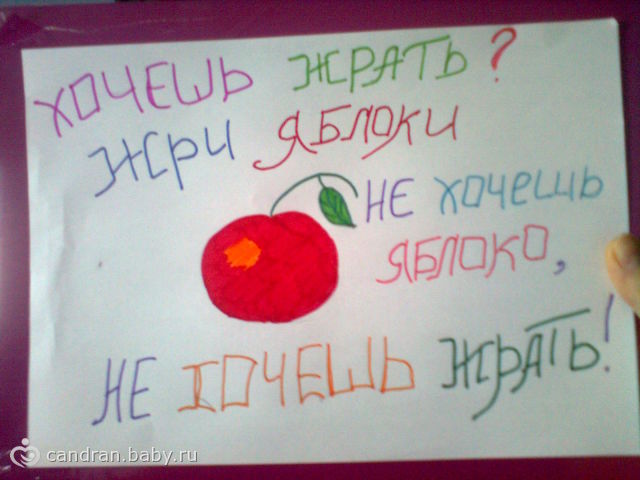 ХОЧЕШЬ ЖРАТЬ?
ЖРИ ЯБЛОКИ
НЕ ХОЧЕШЬ
ЯБЛОКО,
НЕ ХОЧЕШЬ ЖРАТЬ!
candran.baby.ru